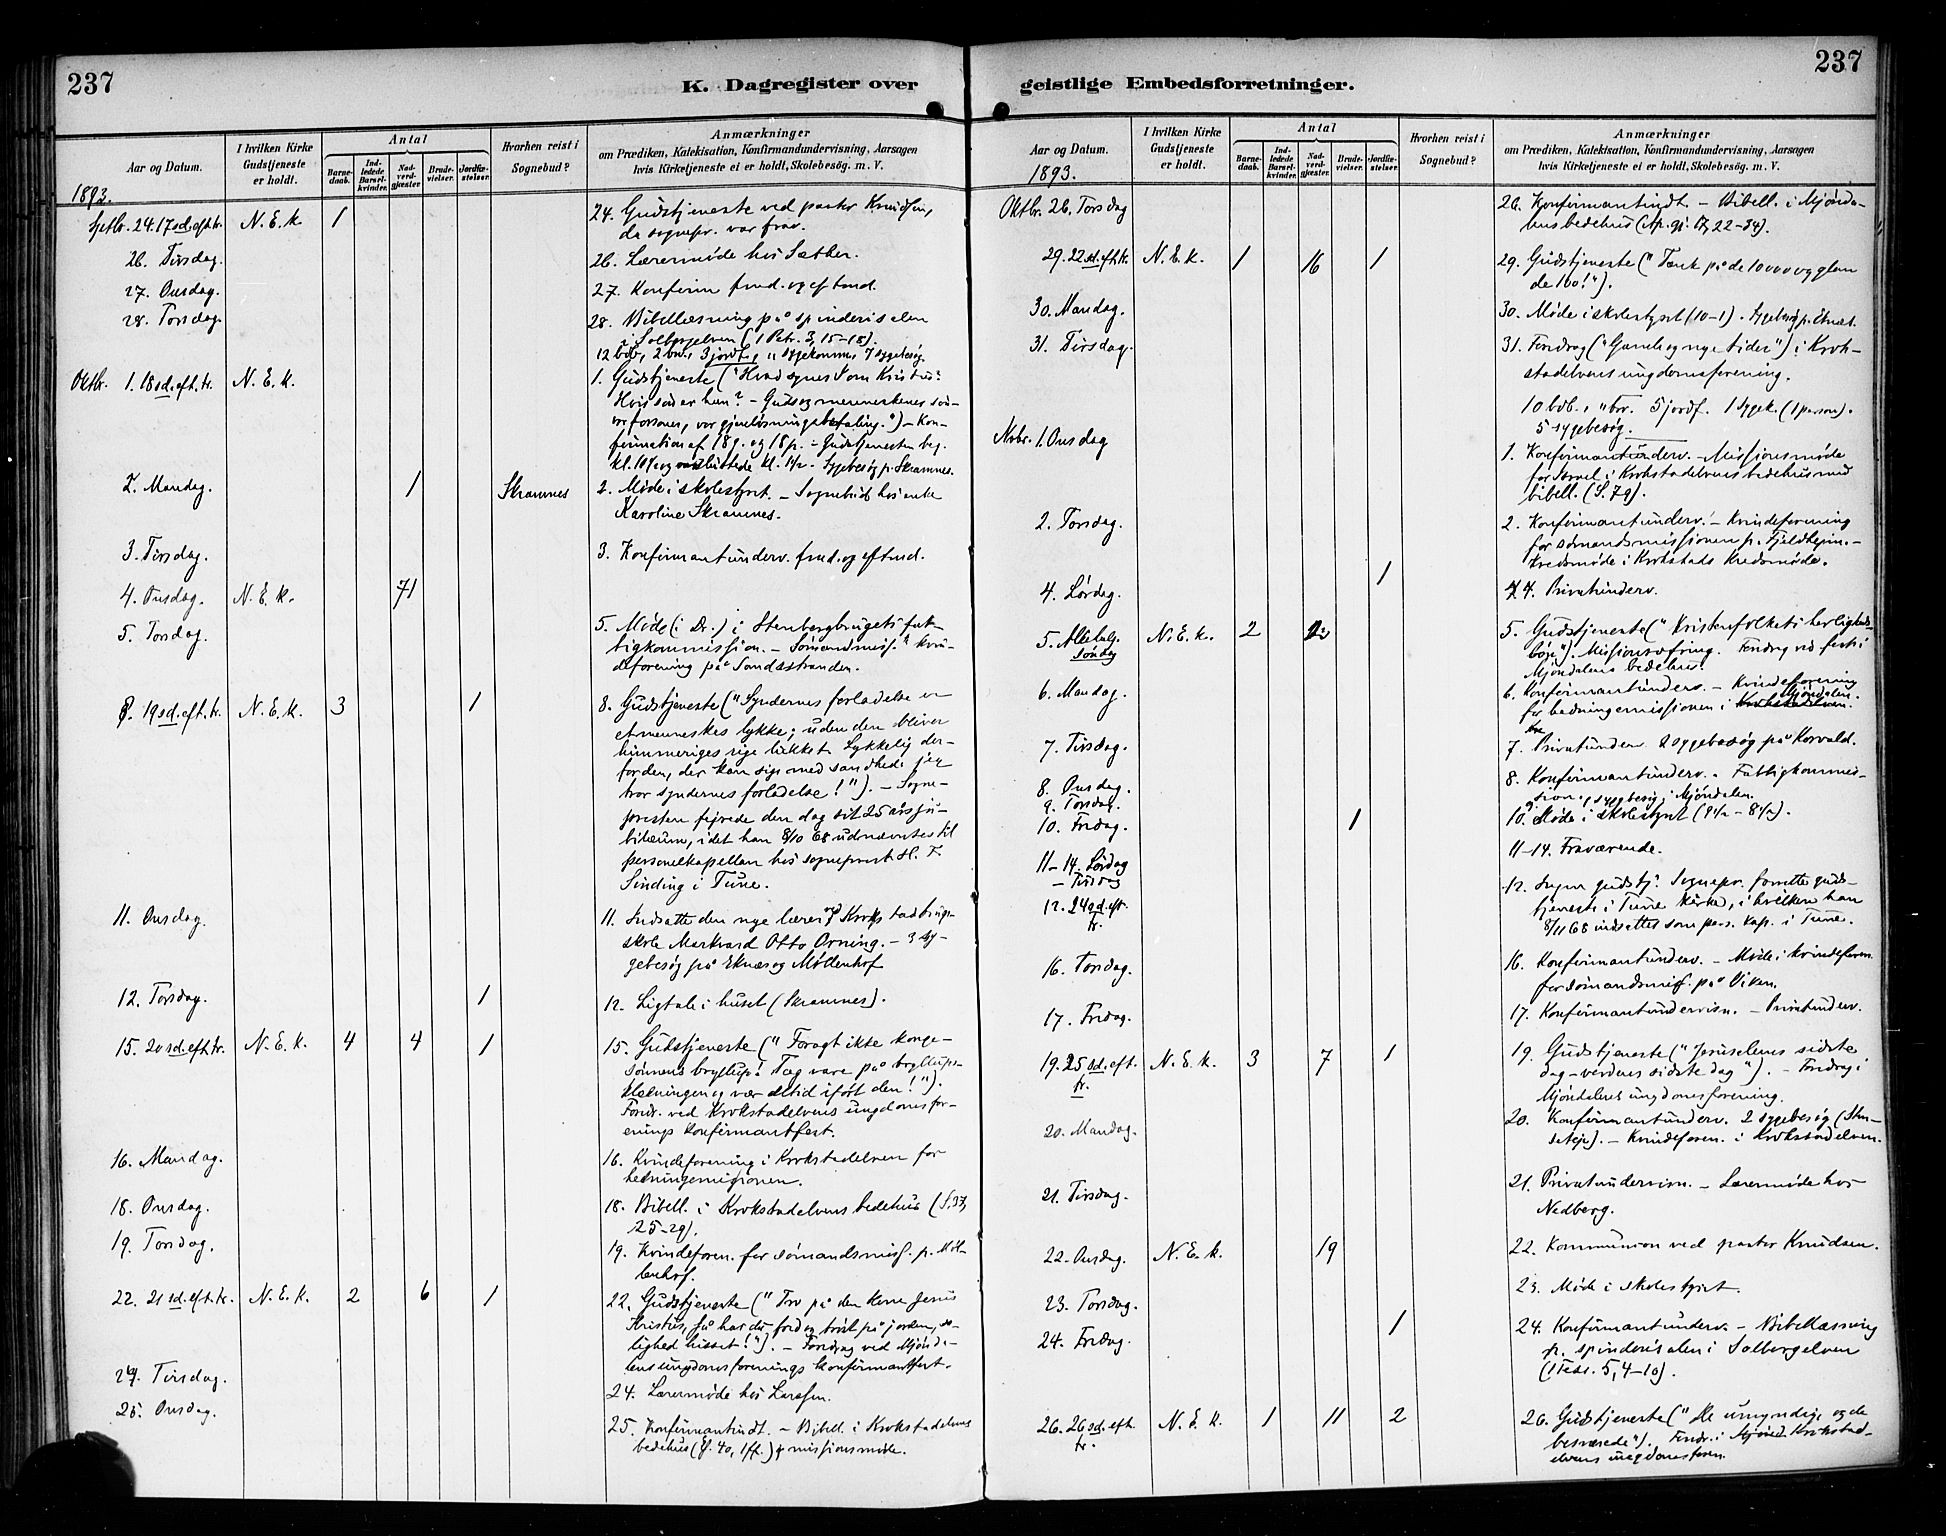 237
K. Dagregister over
Aar og Datum.
I hvilken Kirke
Gudstjeneste
er holdt.
Antal
Barne-
daab.
Ind-
ledede
Barsel-
kvinder.
Nad-
verd-
gjester.
Brude-
vielser.
Jordfæ-
stelser.
Hvorhen reist i
Sognebud?
Anmærkninger
om Prædiken, Katekisation, Konfirmandundervisning, Aarsagen
hvis Kirketjeneste ei er holdt, Skolebesög. m. V.
1893.
Septbr. 24. 17 sd. eft. tr. N. E. k. 1
24. Gudstjeneste ved pastor Knudsen,
da sognepr. var frav.
26. Tirsdag.
26. Lærermøde hos Sæther.
27. Onsdag.
27. Konfirm fmd. og eftmd.
28. Torsdag.
28. Bibellæsning på spinderisalen
i Solbergelven (1 Petr. 3, 15-18).
12 bdb, 2 brv., 3 jordf., " sygekomm., 7 sygebesøg.
Oktbr. 1. 18 sd. eft. tr. N. E. k.
1. Gudstjeneste ("Hvad synes I om Kristus?
Hvis søn er han? - Guds og menneskenes søn
vor forsoner, vor gjenløsningsbetaling.") - Kon-
firmation af 18 g. og 18 p. - Gudstjenesten beg.
kl. 10½ og sluttede kl. 1½ - Sygebesøg p. Skramnes.
2. Mandag. 1 Skramnes
2. Møde i skolestyret. - Sognebud hos enke
Karoline Skramnes.
3. Tirsdag.
3. Konfirmantunderv. fmd. og eftmd.
4. Onsdag. N. E. k. 71
5. Torsdag.
5. Møde (i Dr.) i Stenbergbrugets fat-
tigkommission. - Sømandsmiss.s kvin-
deforening på Sandsstranden.
8. 19 sd. eft. tr. N. E. k. 3 1
8. Gudstjeneste ("Syndernes forladelse er
et menneskes lykke; uden den bliver
himmeriges rige lukket. Lykkelig der-
for den, der kan sige med sandhed: jeg
tror syndernes forladelse!"). - Sogne-
presten fejrede den dag sit 25 års ju-
bilæum, idet han 8/10 68 udnævntes til
personelkapellan hos sogneprest H. T.
Sinding i Tune.
11. Onsdag.
11. Indsatte den nye lærer ved Krokstadbrugs-
skole Markvard Otto Orning. - 3 sy-
gebesøg på Eknæs og Møllenhof
12. Torsdag. 1
12. Ligtale i huset (Skramnes).
15. 20 sd. eft. tr. N. E. k. 4 4 1
15. Gudstjeneste ("Foragt ikke konge-
sønnens bryllup! Tag vare på bryllups-
klædningen og vær altid iført den!").
Foredr. ved Krokstadelvens ungdomsfor-
enings konfirmantfest.
16. Mandag.
16. Kvindeforening i Krokstadelven for
hedningemissionen.
18. Onsdag.
18. Bibell. i Krokstadelvens bedehus (S. 37,
25-29).
19. Torsdag.
19. Kvindeforen. for sømandsmiss. p. Møl-
lenhof.
22. 21 sd. eft. tr. N. E. k. 2 6 1
22. Gudstjeneste ("Tro på den Herre Jesus
Kristus, så har du fred og trøst på jorden, sa-
lighed hisset!"). - Foredrag ved Mjønda-
lens ungdomsforenings konfirmantfest.
24. Tirsdag.
24. Lærermøde hos Larssen.
25. Onsdag.
25. Konfirmantindt. - Bibell. i Krokstadelvens
bedehus (Ef. 40, 1ff.) missionsmøde.
237
geistlige Embedsforretninger.
Aar og Datum.
1893.
I hvilken Kirke
Gudstjeneste
er holdt.
Antal
Barne-
daab.
Ind-
ledede
Barsel-
kvinder.
Nad-
verd-
gjester.
Brude-
vielser.
Jordfæ-
stelser.
Hvorhen reist i
Sognebud?
Anmærkninger
om Prædiken, Katekisation, Konfirmandundervisning, Aarsagen
hvis Kirketjeneste ei er holdt, Skolebesög. m. V.
Oktbr. 26. Torsdag
26. Konfirmantindt. - Bibell. i Mjønda-
lens bedehus (Ap. gj. 17, 22-34).
29. 22 sd. eft. tr. N. E. k. 1 16 1
29. Gudstjeneste ("Tænk på de 10000 og glem
de 100!").
30. Mandag.
30. Møde i skolestyret (10-1). Sygebesøg p. Eknæs.
31. Tirsdag.
31. Foredrag ("Gamle og nye tider") i Krok-
stadelvens ungdomsforening.
10 bdb., " brv. 5 jordf. 1 sygek. (1 person).
5 sygebesøg.
Novbr. 1. Onsdag
1. Konfirmantunderv. - Missionsmøde
for Israel i Krokstadelvens bedehus med
bibell. (S. 79).
2. Torsdag.
2. Konfirmantunderv. - Kvindeforening
for sømandsmissionen p. Fjeldhejm. -
Kredsmøde i Krokstads Kredsmøde.
4. Lørdag. 1
4. Privatunderv.
5. Allehelg. søndag N. E. k. 2
5. Gudstjeneste ("Kristenfolkets herligheds-
håb"). Missionsofring. Foredrag ved fest i
Mjøndalens bedehus.
6. Mandag.
6. Konfirmantunderv. - Kvindeforening
for hedningemissionen i Krokstadelven. Mjøndalen.
7. Tirsdag.
7. Privatunderv. 2 sygebesøg på Korvald.
8. Onsdag.
8. Konfirmantunderv. - Fattigkommis-
sion.
9. Torsdag.
9. 1 sygebesøg i Mjøndalen.
10. Fredag. 1
10. Møde i skolestyret
11-14. Lørdag
- Tirsdag
11-14. Fraværende.
12. 24 sd. eft.
tr.
12. Ingen gudstj. Sognepr. forrettede guds-
tjeneste i Tune kirke, i hvilken han
8/11 68 indsattes som pers. kap. i Tune.
16. Torsdag.
16. Konfirmantunderv. - Møde i kvindeforen.
for sømandsmiss. på Viken.
17. Fredag.
17. Konfirmantundervisn. - Privatunderv.
19. 25 sd. eft.
tr. N. E. k. 3 7 1
19. Gudstjeneste ("Jerusalems sidste
dag - verdens sidste dag"). - Foredrag i
Mjøndalens ungdomsforening.
20. Mandag.
20. Konfirmantunderv. 2 sygebesøg (Sten-
seteje). - Kvindeforen. i Krokstadelven.
21. Tirsdag.
21. Privatundervisn. - Lærermøde hos
Nedberg.
22. Onsdag. N. E. k. 19
22. Kommunion ved pastor Knudsen.
23. Torsdag.
23. Møde i skolestyret.
24. Fredag. 1
24. Konfirmantunderv. - Bibellæsning
p. spinderisalen i Solbergelven
(1 Tess. 5, 4-10).
26. 26 sd. eft.
tr. N. E. k. 1 11 2
26. Gudstjeneste ("De umyndige og de
besværede"). Foredr. i Mjønd Krokstad-
elvens ungdomsforen.